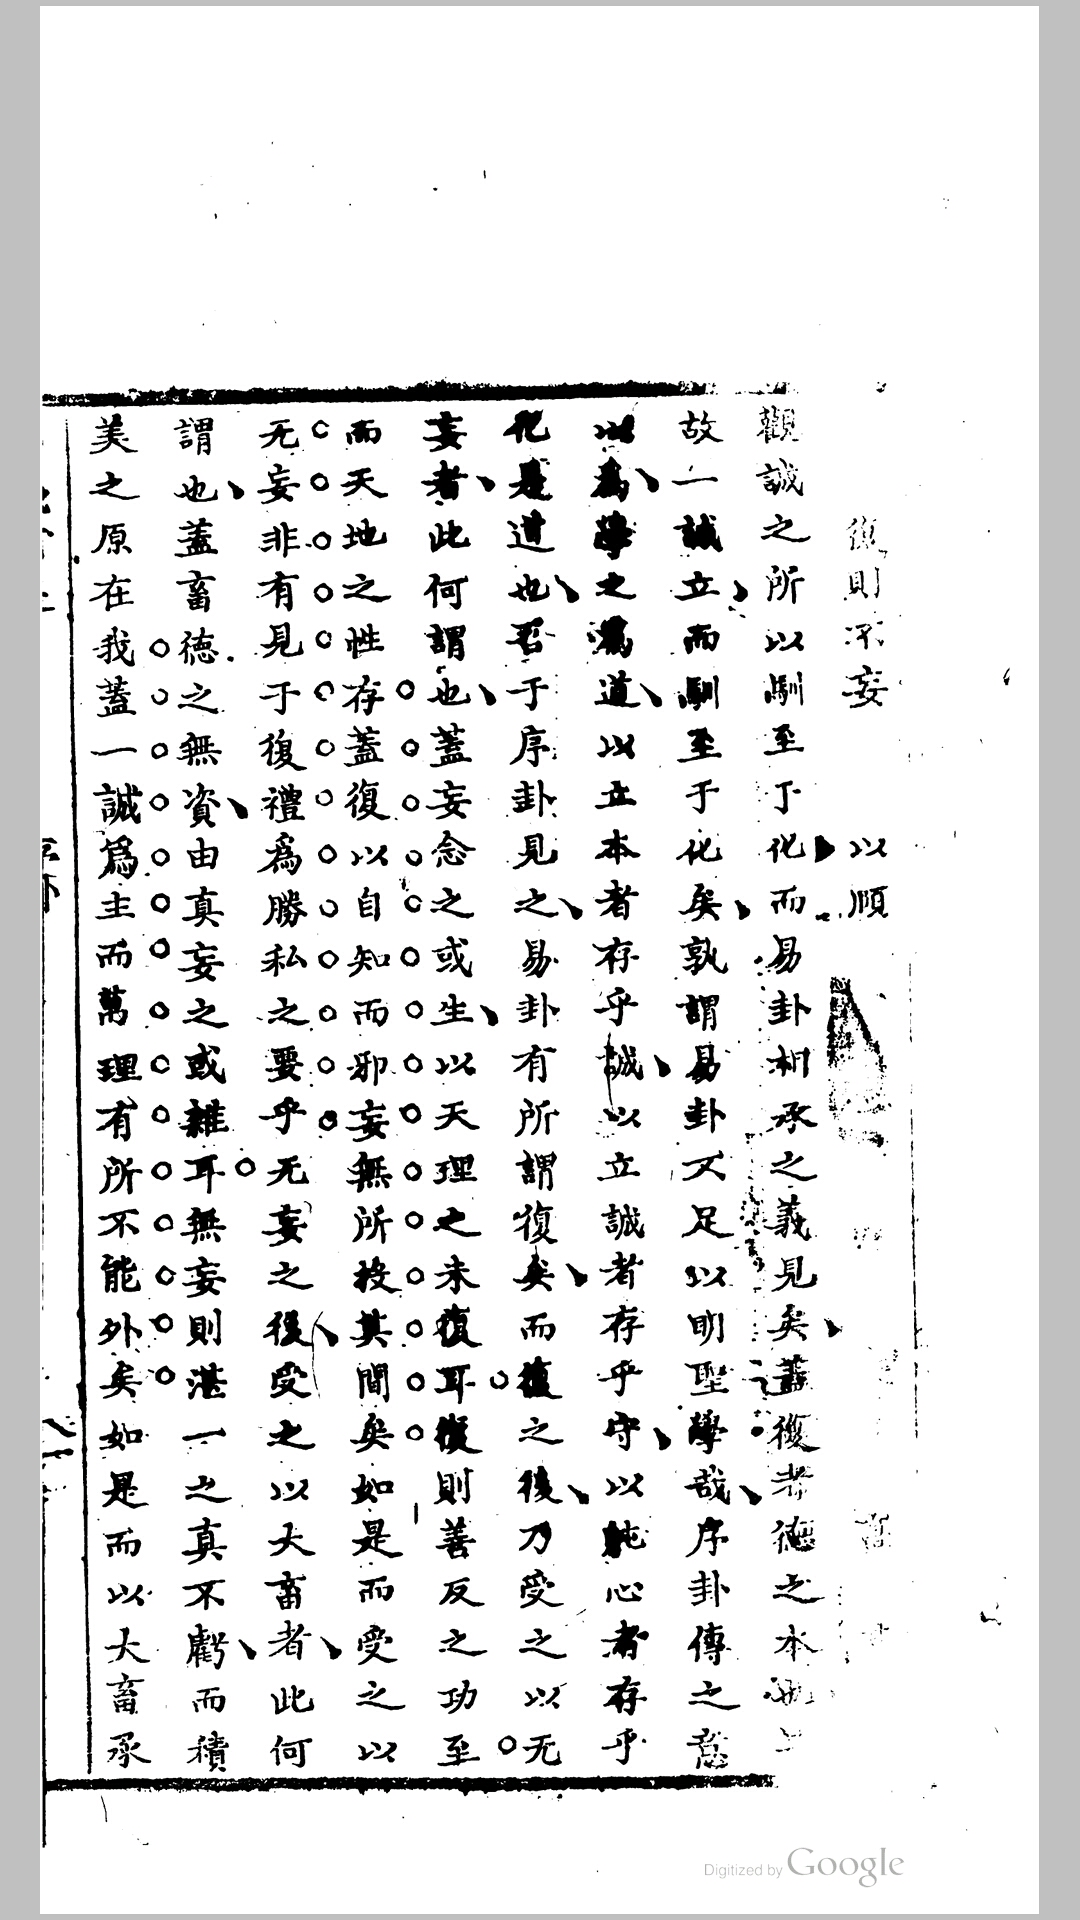 復則不妄 以順
觀誠之所以馴至于化而易卦相承之義見矣蓋復者德之本也
故一誠立而馴至于化矣孰謂易卦又足以明聖學哉序卦傳之意
以為學之為道以立本者存乎誠以立誠者存乎守以純心者存乎
化是道也吾于序卦見之易卦有所謂復矣而復之後乃受之以无
妄者此何謂也蓋妄念之或生以天理之未復耳復則善反之功至
而天地之性存蓋復以自知而邪妄無所投其間矣如是而受之以
无妄非有見于復禮為勝私之要乎无妄之後受之以大畜者此何
謂也蓋畜德之無資由真妄之或雜耳無妄則湛一之真不虧而積
美之原在我蓋一誠爲主而萬理有所不能外矣如是而以大畜承
Digitized by Google